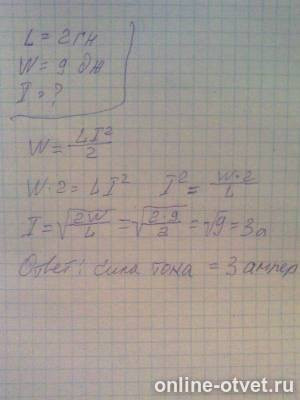 L = 2 гн
W = 9 дж
I = ?
W = LI²/2
W·2 = LI² I² = W·2/L
I = √(2W/L) = √(2·9/2) = √9 = 3а
Ответ: сила тока = 3 ампер
online-otvet.ru